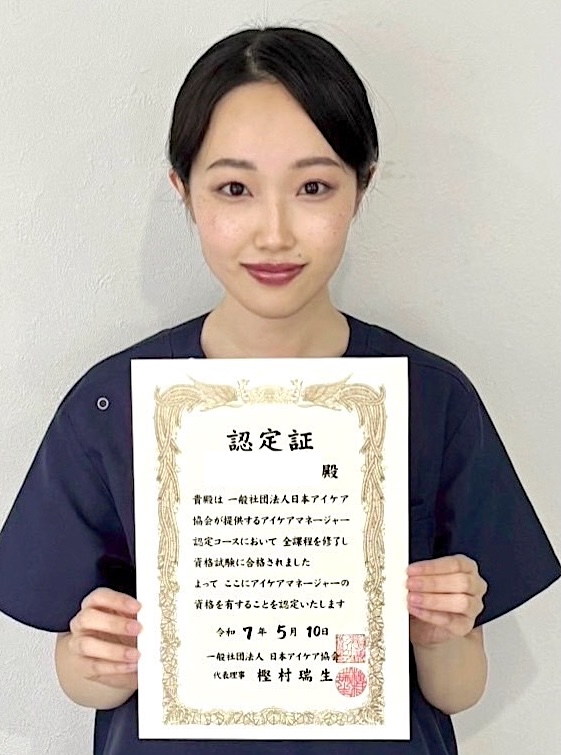 認定証
殿
貴殿は 一般社団法人日本アイケア
協会が提供するアイケアマネージャー
認定コースにおいて 全課程を修了し
資格試験に合格されました
よって ここにアイケアマネージャーの
資格を有することを認定いたします
令和 7 年 5 月 10 日
一般社団法人 日本アイケア協会
代表理事 樫村瑞生